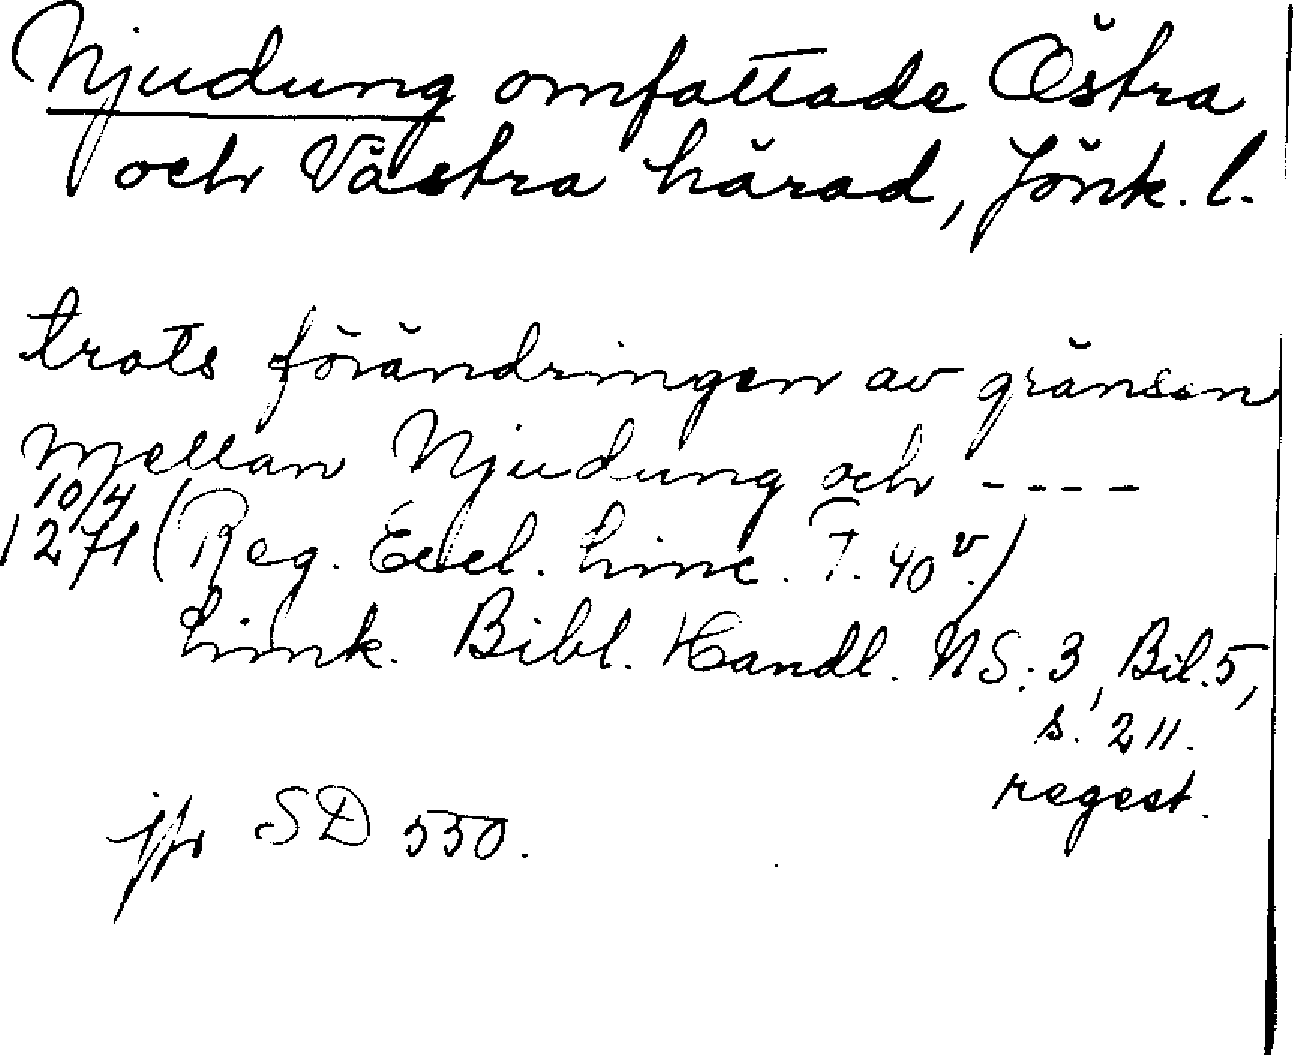 Njudung omfattade Östra
och Västra härad, Jönk. l.
trots förändringen av gränsen
mellan Njudung och ----
10/4
1271 (Reg. Eccl. Linc. F. 40v.)
Link. Bibl. Handl. NS: 3, Bil. 5,
s. 211.
regest.
jfr SD 550.